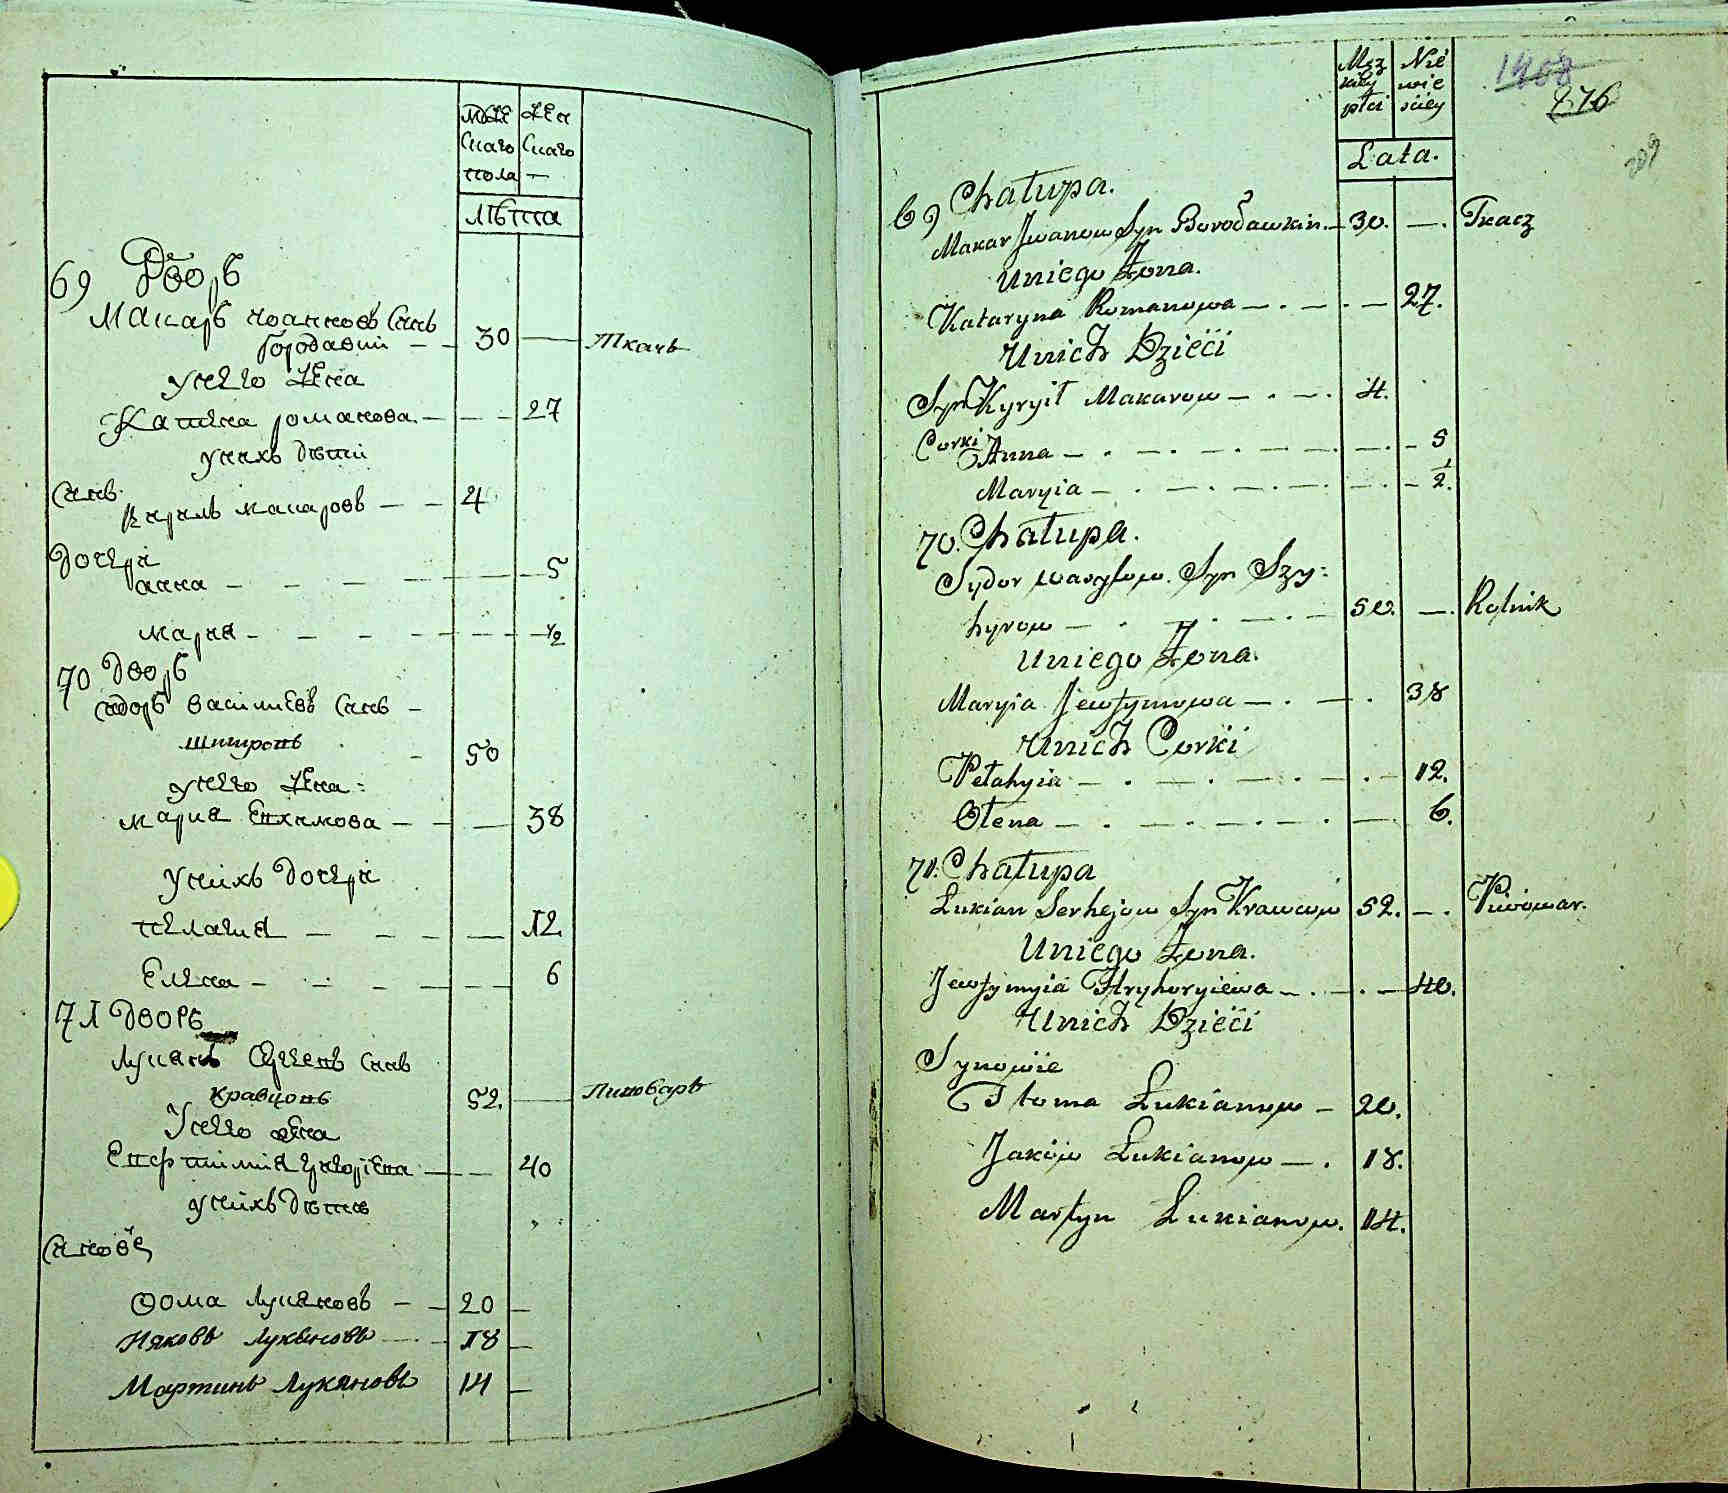 муже женс
скаго скаго
пола —
лѣта
69 Дворъ
Макаръ иоанновъ сынъ
бородавки — — 30 — Ткачь
унего жена
Катина романова. — — — 27
унихъ дѣти
сынъ
кирилъ макаровъ — — 4
дочери
анна — — — — — — 5
мария — — — — — — 1/2
70 дворъ
сидоръ василиевъ сынъ —
— 50
унего жена:
мария Ефимова — — — 38
унихъ дочери
пелагия — — — — 12
Елена — — — — — 6
71 дворъ
лукянъ сынъ
кравцовъ 52. — Пивоваръ
Унего жена
— — 40
унихъ дѣти
сынове
Ѳома Лукяновъ — — 20 —
Ияковъ Лукяновъ — — 18 —
Мартинъ Лукяновъ 14 —
Męz Nie
kiey wie
płci sciey
Lata.
1468
776
209
69 Chałupa.
Makar Jwanow Syn Borodawkin. — 30. — . Tkacz
Uniego Żona.
Kataryna Romanowa — . — . — 27.
Unich Dzieci
Syn Kyryił Makarow — . — . 4.
Corki
Anna — . — . — . — . — 5
Maryia — . — . — . — . — 1/2.
70. Chałupa.
Sydor wasylow. Syn Szy:
hyrow — . — . — 50. — . Rolnik
Uniego Żona.
Maryia Jewfymowa — . — . 38
Unich Corki
Pełahyia — . — . — . — 12.
Ołena — . — . — . — 6.
71. Chałupa
Łukian Serhejow Syn Krawcow 52. — . Piwowar.
Uniego Żona.
Jewfymyia Hryhoryiewa — . — . — 40.
Unich Dzieci
Synowie
Thoma Łukianow — 20.
Jakow Łukianow — . 18.
Martyn Łukianow. 14.